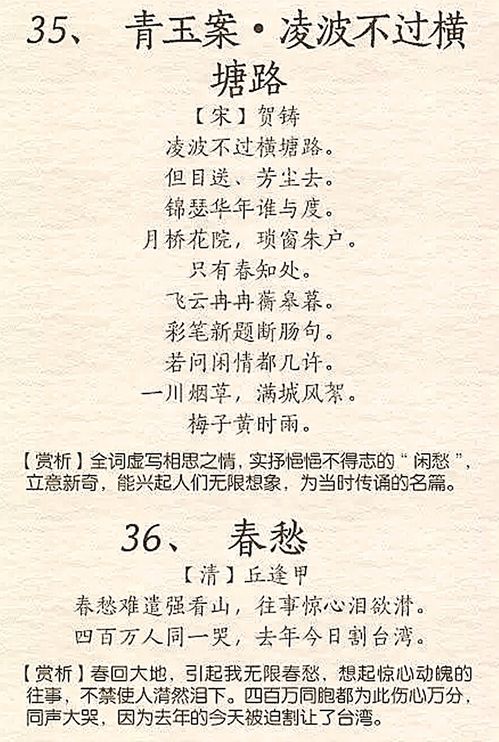 35、 青玉案·凌波不过横
塘路
【宋】贺铸
凌波不过横塘路。
但目送、芳尘去。
锦瑟华年谁与度。
月桥花院，琐窗朱户。
只有春知处。
飞云冉冉蘅皋暮。
彩笔新题断肠句。
若问闲情都几许。
一川烟草，满城风絮。
梅子黄时雨。
【赏析】全词虚写相思之情，实抒悒悒不得志的“闲愁”，
立意新奇，能兴起人们无限想象，为当时传诵的名篇。
36、 春愁
【清】丘逢甲
春愁难遣强看山，往事惊心泪欲潸。
四百万人同一哭，去年今日割台湾。
【赏析】春回大地，引起我无限春愁，想起惊心动魄的
往事，不禁使人潸然泪下。四百万同胞都为此伤心万分，
同声大哭，因为去年的今天被迫割让了台湾。